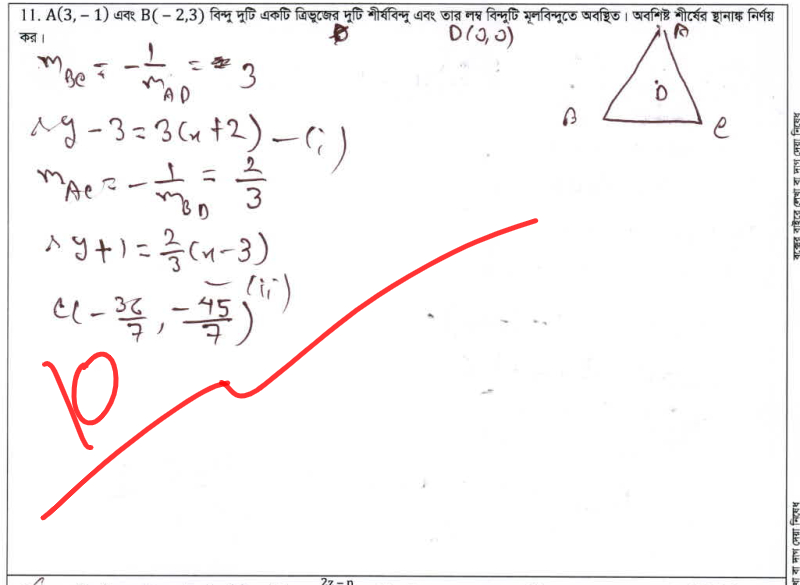 11. A(3, – 1) এবং B( – 2,3) বিন্দু দুটি একটি ত্রিভুজের দুটি শীর্ষবিন্দু এবং তার লম্ব বিন্দুটি মূলবিন্দুতে অবস্থিত। অবশিষ্ট শীর্ষের স্থানাঙ্ক নির্ণয়
কর।
D(0,0)
A
D
B
C
m_BC = - 1/m_AD = 3
∴ y - 3 = 3(x+2) - (i)
m_AC = - 1/m_BD = 2/3
∴ y+1 = 2/3 (x-3)
- (ii)
C(- 36/7, -45/7)
10
বক্সের বাইরে লেখা বা দাগ দেয়া নিষেধ
বা দাগ দেয়া নিষেধ